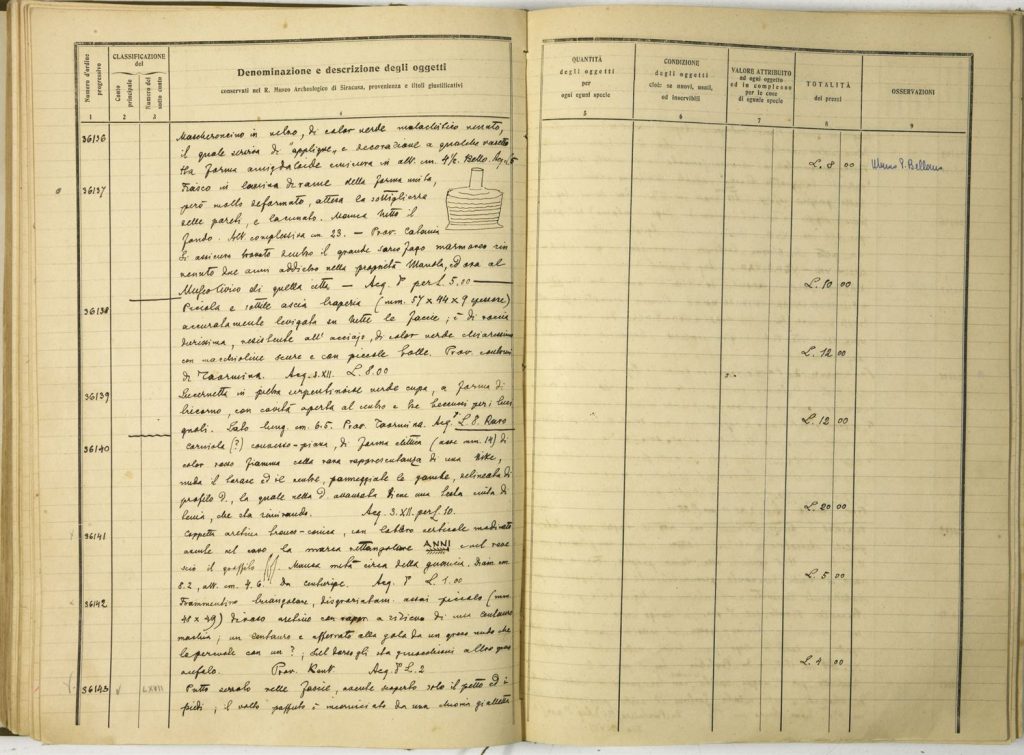 Numero d'ordine progressivo
CLASSIFICAZIONE del
Conto principale
Numero del sotto conto
Denominazione e descrizione degli oggetti
conservati nel R. Museo Archeologico di Siracusa, provenienza e titoli giustificativi
1 2 3 4
36136 Mascheroncino in vetro, di color verde malachitico venato,
il quale serviva di "applique" e decorazione a qualche vasetto
Ha forma amigdaloide e misura in alt. cm. 4½. Bello.
36137 Fiasco in lamina di rame della forma
però molto deformato, attesa la sottigliezza
delle pareti, e lacunato. Manca tutto il
fondo. Alt. complessiva cm. 23. — Prov. Catania
Si assicura trovato dentro il grande sarcofago marmoreo rin
venuto due anni addietro nella proprietà ed ora al
Museo Civico di quella città — Acq. per L. 5,00
36138 Piccola e sottile ascia trapezia (mm. 57 x 44 x 9 spessore)
accuratamente levigata su tutte le faccie; è di roccia
durissima, resistente all'acciajo, di color verde chiarissimo
con macchioline scure e con piccole bolle. Prov. contorni
di Taormina. Acq. 3.XII. L. 8.00
36139 Lucernetta in pietra serpentinosa verde cupa, a forma di
tricorno, con cavità aperta al centro e tre beccucci per i luci
gnoli. Lato lung. cm. 6.5. Prov. Taormina. Acq. L. 8. Raro
36140 Corniola (?) convesso-piana, di forma ellittica (asse mm. 14) di
color rosso fiamma colla rara rappresentanza di una Nike,
nuda il torace ed il ventre, panneggiate le gambe, delineata di
profilo D., la quale nella D. avanzata tiene una testa
che sta rimirando. Acq. 3.XII. per L. 10.
36141 Coppetta aretina tronco-conica, con labbro verticale modinato
avente nel cavo la marca rettangolare ANNI e nel rove
scio il graffito Manca metà circa della guancia. Diam. cm.
8.2, alt. cm. 4.6. Da Centuripe. Acq. L. 1.00
36142 Frammentino triangolare, disgraziatam. assai piccolo (mm.
48 x 49) di vaso aretino con rappr. a rilievo di una centauro
machia; un centauro è afferrato alla gola da un greco nudo che
lo percuote con un ?; sul dorso gli sta altro greco
Prov. Acq. L. 2
36143 LXVII Putto serrato nelle fascie, avente scoperto solo il petto ed i
piedi; il volto paffuto è incorniciato da una chioma
QUANTITÀ
degli oggetti
per
ogni egual specie
CONDIZIONE
degli oggetti
cioè: se nuovi, usati,
od inservibili
VALORE ATTRIBUITO
ad ogni oggetto
ed in complesso
per le cose
di eguale specie
TOTALITÀ
dei prezzi
OSSERVAZIONI
5 6 7 8 9
L. 8 00
L. 10 00
L. 12 00
L. 12 00
L. 20 00
L. 5 00
L. 4 00